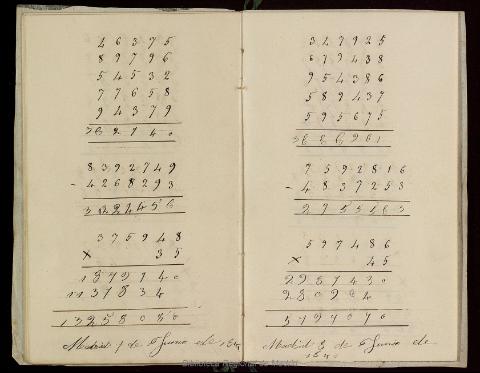 46375
89796
54532
77658
94379
362740
8392749
- 4268293
375948
× 35
1879740
1137834
13258080
Madrid 1 de Junio de
347925
679438
954386
589437
595675
7592816
- 4837253
2755563
597486
× 45
2987430
Madrid 3 de Junio de
1840
Biblioteca Regional de Madrid